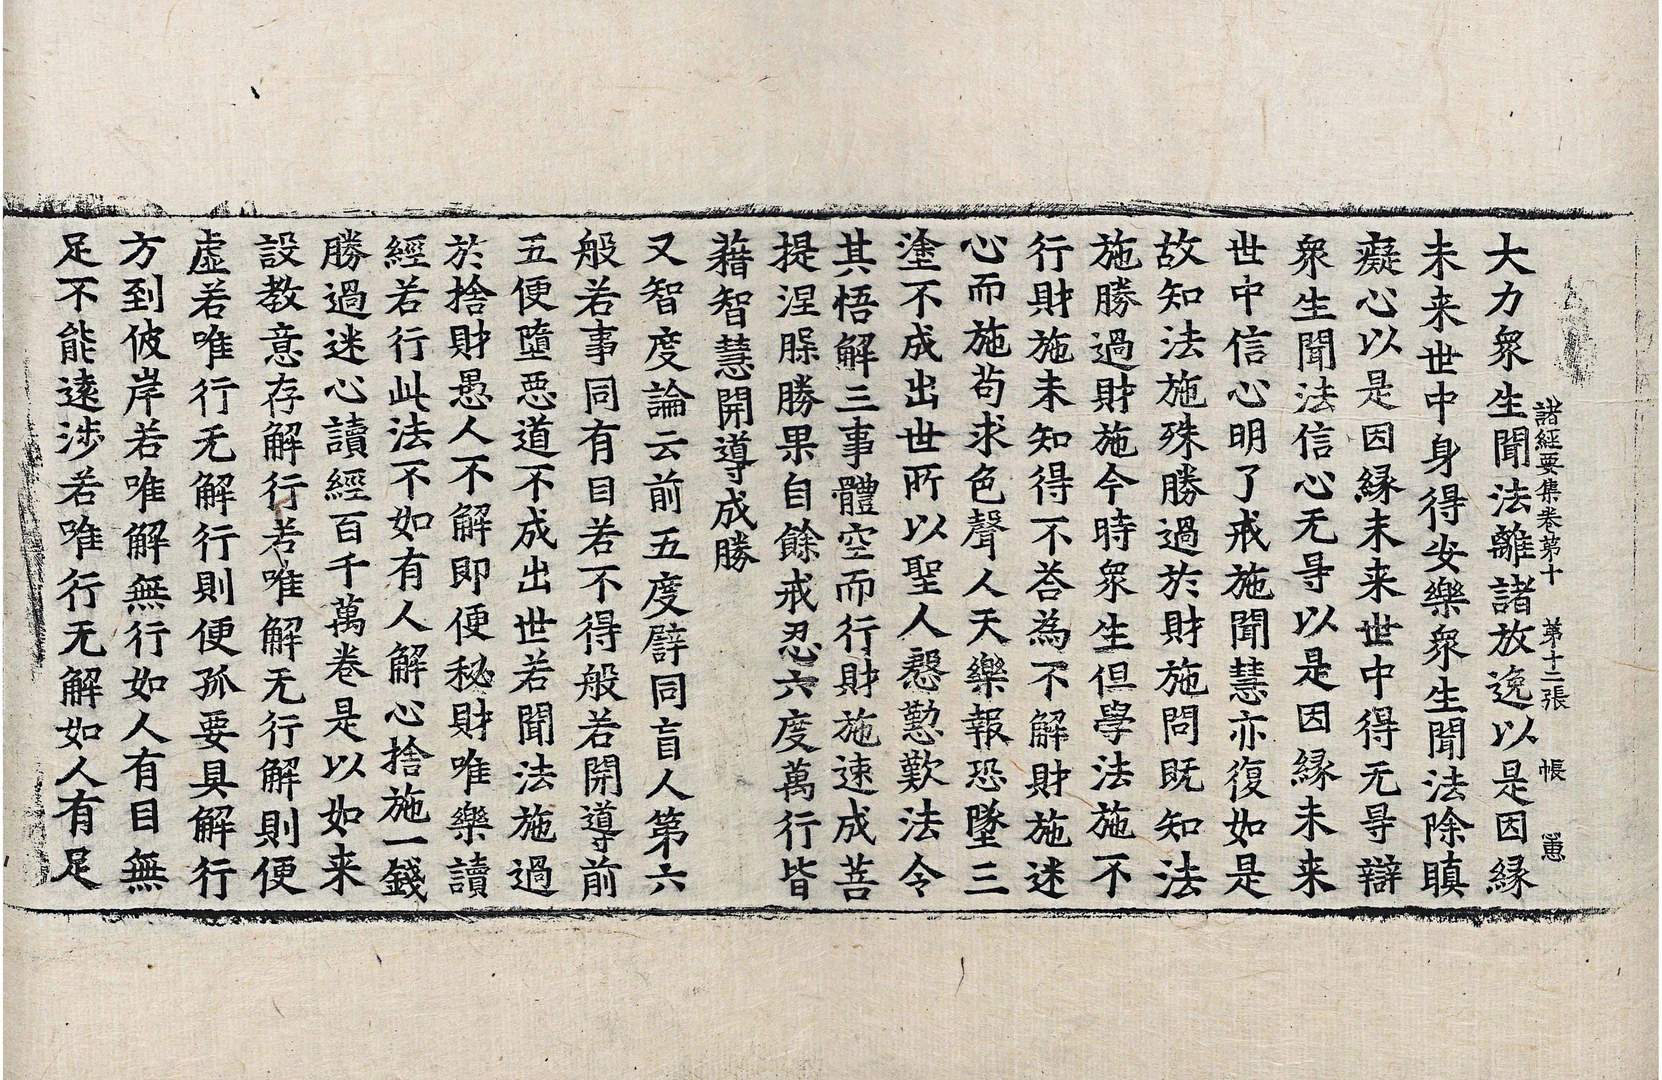 諸經要集卷第十　第十二張　帳　𢜤
大力衆生聞法離諸放逸以是因縁
未来世中身得安樂衆生聞法除瞋
癡心以是因縁未来世中得无㝵辯
衆生聞法信心无㝵以是因縁未来
世中信心明了戒施聞慧亦復如是
故知法施殊勝過於財施問既知法
施勝過財施今時衆生但學法施不
行財施未知得不荅為不解財施迷
心而施苟求色聲人天樂報恐墜三
塗不成出世所以聖人慇懃歎法令
其悟解三事體空而行財施速成菩
提涅槃勝果自餘戒忍六度萬行皆
藉智慧開導成勝
又智度論云前五度譬同盲人第六
般若事同有目若不得般若開導前
五便墮惡道不成出世若聞法施過
於捨財愚人不解即便秘財唯樂讀
經若行此法不如有人解心捨施一錢
勝過迷心讀經百千萬卷是以如来
設教意存解行若唯解无行解則便
虛若唯行无解行則便孤要具解行
方到彼岸若唯解無行如人有目無
足不能遠涉若唯行无解如人有足